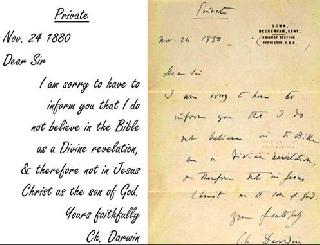 Private
Nov. 24 1880
Dear Sir
I am sorry to have to
inform you that I do
not believe in the Bible
as a Divine revelation,
& therefore not in Jesus
Christ as the son of God.
Yours faithfully
Ch. Darwin
Private
DOWN,
BECKENHAM, KENT.
Nov. 24 1880
Dear Sir
I am sorry to have to
inform you that I do
not believe in the Bible
as a divine revelation,
& therefore not in Jesus
Christ as the son of God.
Yours faithfully
Ch. Darwin